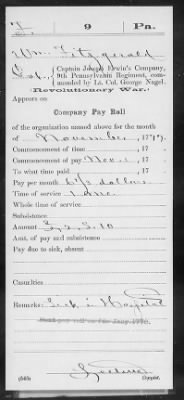 F 9 Pa.
Wm. Fitzgerald
Captain Joseph Erwin's Company,
9th Pennsylvania Regiment, com-
manded by Lt. Col. George Nagel.
(Revolutionary War.)
Appears on
Company Pay Roll
of the organization named above for the month
of November, 1777.
Commencement of time , 17
Commencement of pay Nov. 1, 17
To what time paid , 17
Pay per month 6 2/3 dollars
Time of service 1 mo.
Whole time of service
Subsistence
Amount £ 2. 5. 10
Amt. of pay and subsistence
Pay due to sick, absent
Casualties
Remarks: Sick in Hospital
Copyist.